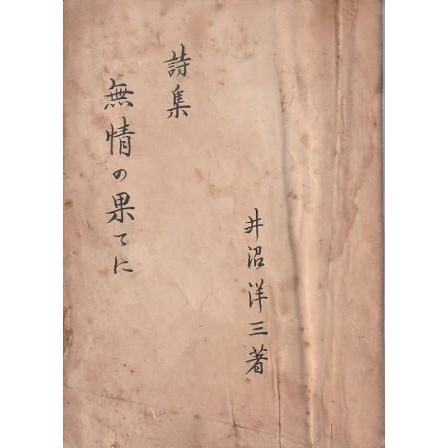 詩集
無情の果てに
井沼洋三著